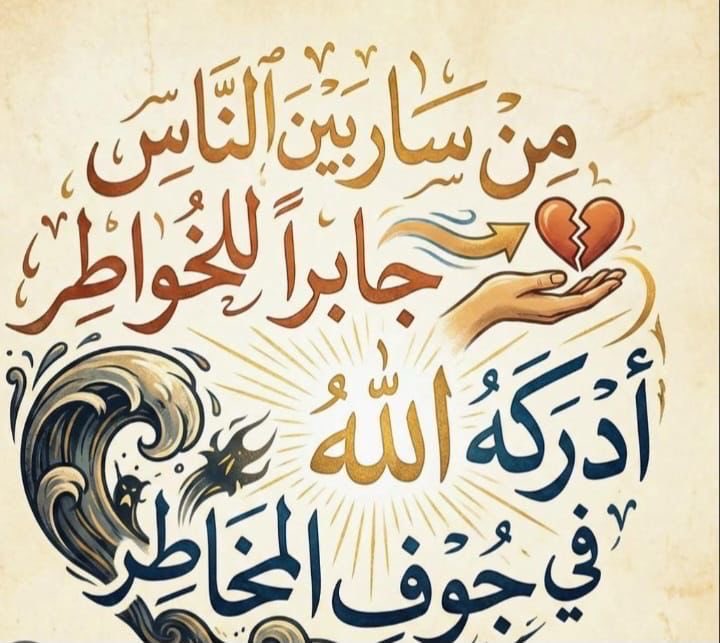 مِنْ سَار بَيْنَ ٱلنَّاسِ
جابراً للخُواطِر
أدْرَكَهُ اللّٰهُ
في جُوْفِ المَخَاطِر